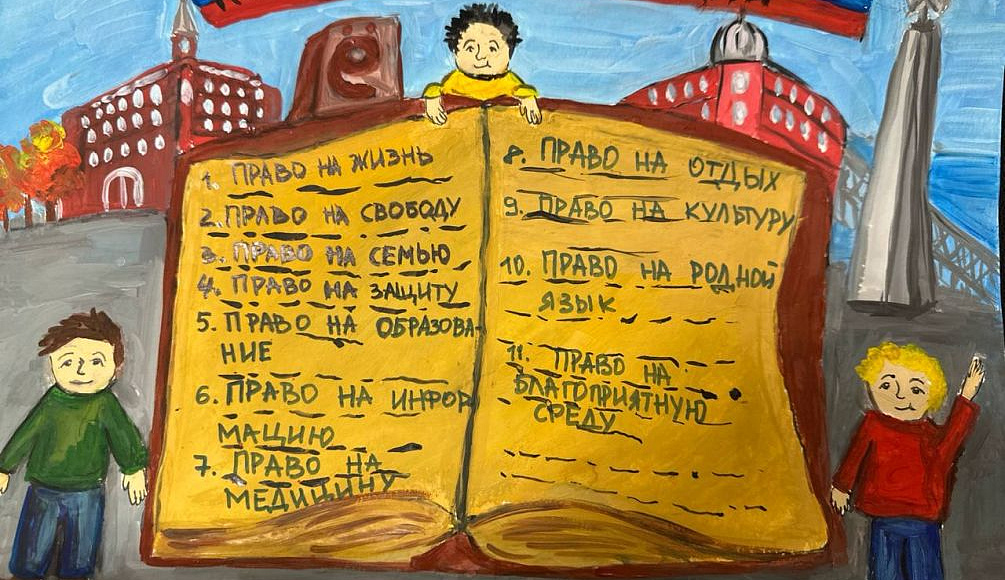 1. ПРАВО НА ЖИЗНЬ
2. ПРАВО НА СВОБОДУ
3. ПРАВО НА СЕМЬЮ
4. ПРАВО НА ЗАЩИТУ
5. ПРАВО НА ОБРАЗОВА-
НИЕ
6. ПРАВО НА ИНФОР
МАЦИЮ
7. ПРАВО НА
МЕДИЦИНУ
8. ПРАВО НА ОТДЫХ
9. ПРАВО НА КУЛЬТУРУ
10. ПРАВО НА РОДНОЙ
ЯЗЫК
11. ПРАВО НА
БЛАГОПРИЯТНУЮ
СРЕДУ